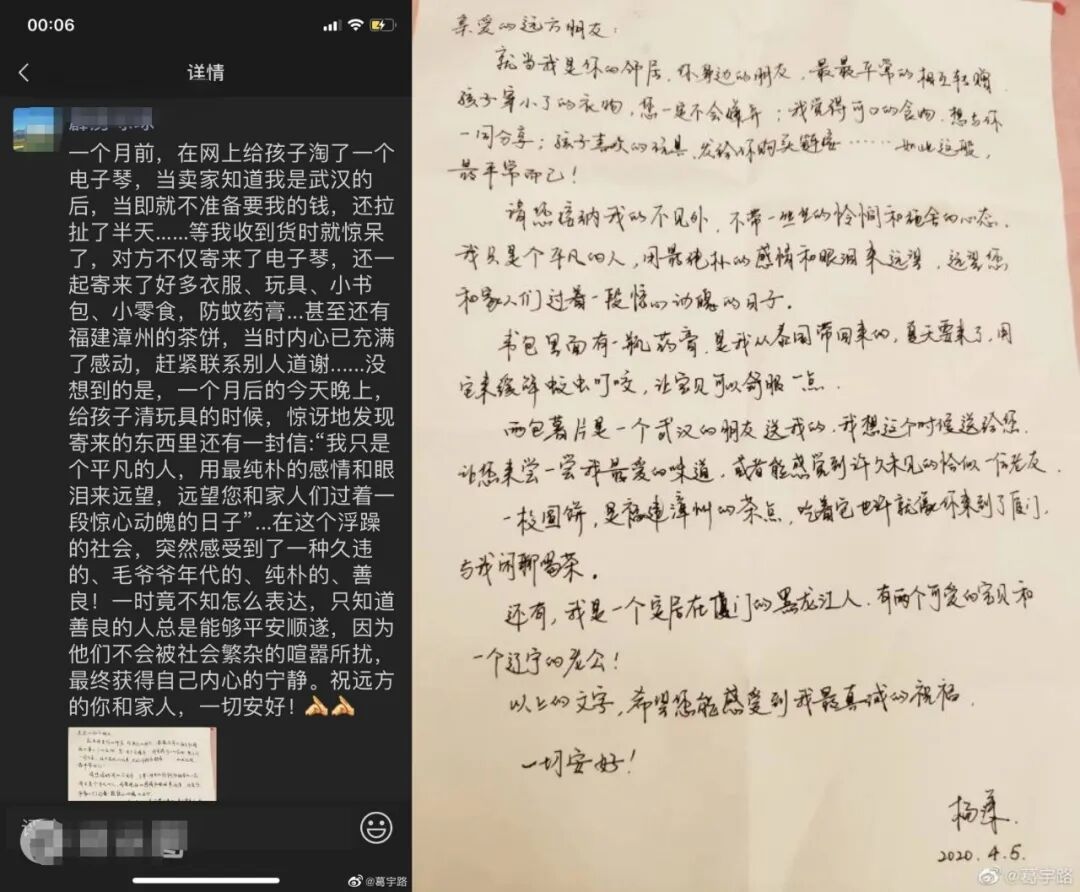 00:06
详情
一个月前，在网上给孩子淘了一个
电子琴，当卖家知道我是武汉的
后，当即就不准备要我的钱，还拉
扯了半天......等我收到货时就惊呆
了，对方不仅寄来了电子琴，还一
起寄来了好多衣服、玩具、小书
包、小零食，防蚊药膏...甚至还有
福建漳州的茶饼，当时内心已充满
了感动，赶紧联系别人道谢......没
想到的是，一个月后的今天晚上，
给孩子清玩具的时候，惊讶地发现
寄来的东西里还有一封信:“我只是
个平凡的人，用最纯朴的感情和眼
泪来远望，远望您和家人们过着一
段惊心动魄的日子”...在这个浮躁
的社会，突然感受到了一种久违
的、毛爷爷年代的、纯朴的、善
良！一时竟不知怎么表达，只知道
善良的人总是能够平安顺遂，因为
他们不会被社会繁杂的喧嚣所扰，
最终获得自己内心的宁静。祝远方
的你和家人，一切安好！
@葛宇路
亲爱的远方朋友：
就当我是你的邻居，你身边的朋友，最最平常的相互转赠，
孩子穿小了的衣物，您一定不会嫌弃；我觉得可口的食物，想与你
一同分享；孩子喜欢的玩具，发给你购买链接……如此这般，
最平常而已！
请您接纳我的不见外，不带一些些的怜悯和施舍的心态，
我只是个平凡的人，用最纯朴的感情和眼泪来远望，远望您
和家人们过着一段惊心动魄的日子。
书包里面有一瓶药膏，是我从泰国带回来的，夏天要来了，用
它来缓解蚊虫叮咬，让宝贝可以舒服一点．
两包薯片是一个武汉的朋友送我的，我想这个时候送给您，
让您来尝一尝我最爱的味道，或者能感觉到许久未见的恰似一位老友．
一枚圆饼，是福建漳州的茶点，吃着它也许就像你来到了厦门，
与我闲聊喝茶。
还有，我是一个定居在厦门的黑龙江人，有两个可爱的宝贝和
一个辽宁的老公！
以上的文字，希望您能感受到我最真诚的祝福．
一切安好！
杨
2020.4.5.
@葛宇路